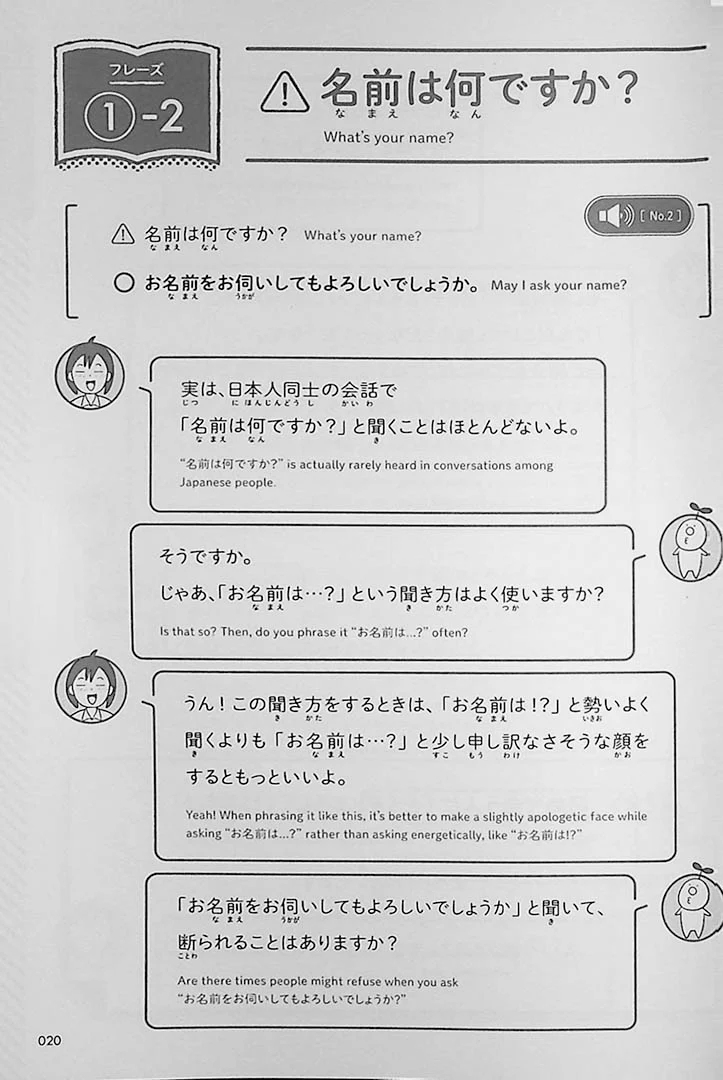 フレーズ
①-2
名前は何ですか？
なまえ なん
What's your name?
[ No.2 ]
名前は何ですか？ What's your name?
なまえ なん
お名前をお伺いしてもよろしいでしょうか。 May I ask your name?
なまえ うかが
実は、日本人同士の会話で
じつ にほんじんどうし かいわ
「名前は何ですか？」と聞くことはほとんどないよ。
なまえ なん き
“名前は何ですか?” is actually rarely heard in conversations among
Japanese people.
そうですか。
じゃあ、「お名前は…？」という聞き方はよく使いますか？
なまえ き かた つか
Is that so? Then, do you phrase it “お名前は...?” often?
うん！この聞き方をするときは、「お名前は！？」と勢いよく
き かた なまえ いきお
聞くよりも「お名前は…？」と少し申し訳なさそうな顔を
き なまえ すこ もう わけ かお
するともっといいよ。
Yeah! When phrasing it like this, it's better to make a slightly apologetic face while
asking “お名前は...?” rather than asking energetically, like “お名前は!?”
「お名前をお伺いしてもよろしいでしょうか」と聞いて、
なまえ うかが き
断られることはありますか？
ことわ
Are there times people might refuse when you ask
“お名前をお伺いしてもよろしいでしょうか?”
020